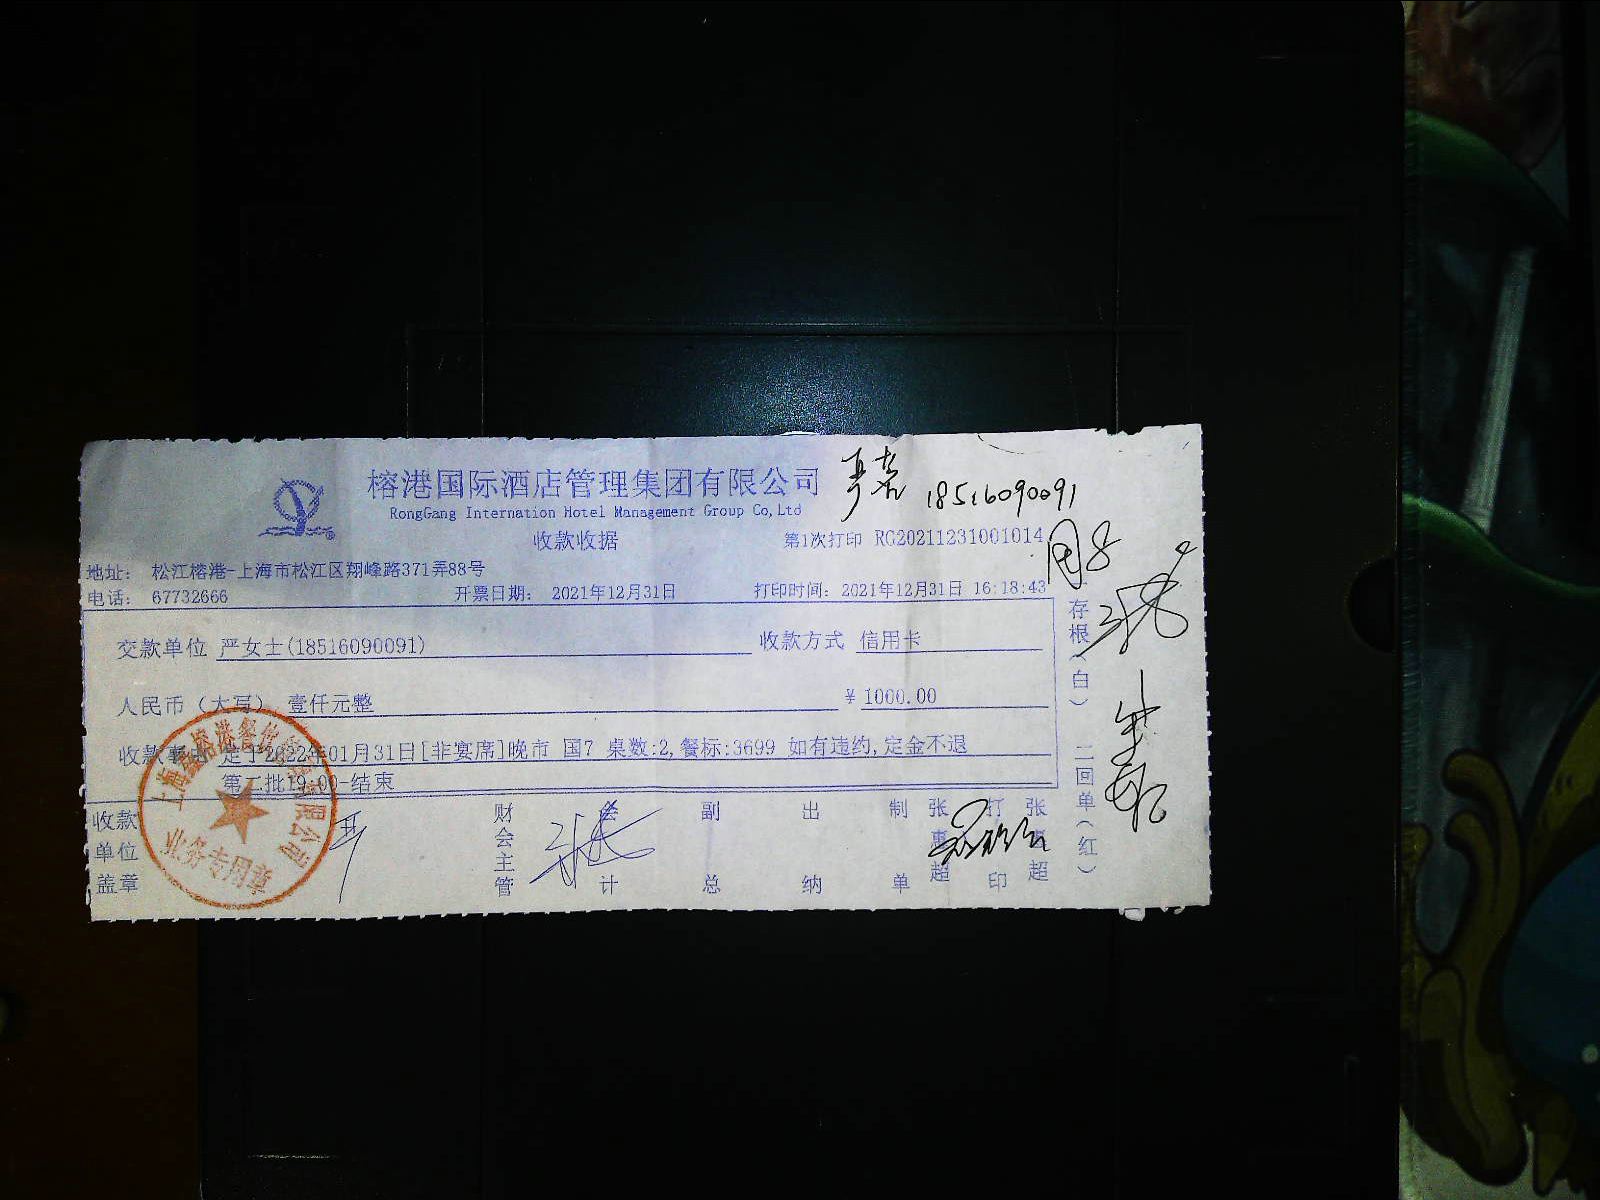 榕港国际酒店管理集团有限公司
RongGang Internation Hotel Management Group Co,Ltd
18516090091
收款收据
第1次打印 RC20211231001014
地址： 松江榕港-上海市松江区翔峰路371弄88号
电话： 67732666 开票日期： 2021年12月31日 打印时间：2021年12月31日 16:18:43
交款单位 严女士(18516090091) 收款方式 信用卡
人民币（大写） 壹仟元整 ￥1000.00
收款事由 定于2022年01月31日[非宴席]晚市 国7 桌数:2,餐标:3699 如有违约,定金不退
第二批19:00-结束
收款单位盖章 财会主管 会计 副总 出纳 制单 张惠超 打印 张惠超
存根（白） 二回单（红）
业务专用章